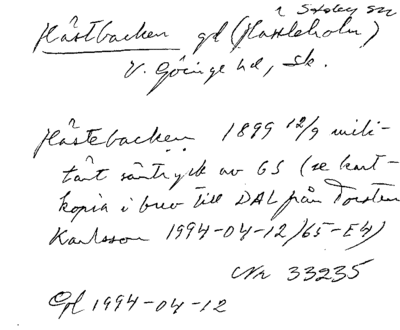 i Stoby sn
Hästbacken gd (Hässleholm)
V. Göinge hd, Sk.
Hästebacken 1899 12/9 mili-
tärt särtryck av GS (se kart-
kopia i brev till DAL från Torsten
Karlsson 1994-04-12) 65-E4)
Nr 33235
1994-04-12